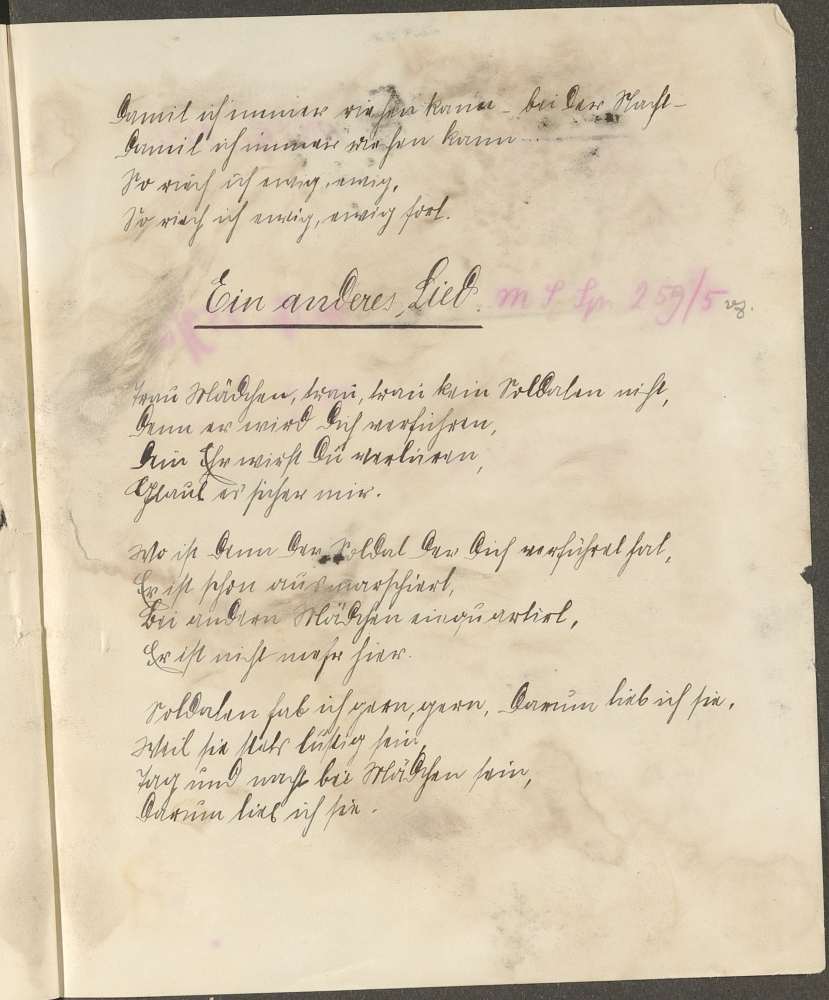 Damit ich immer riechen kann – bei der Nacht –
Damit ich immer riechen kann
So riech ich ewig, ewig,
So riech ich ewig, ewig fort.
Ein anderes Lied. 259/5
Trau Mädchen, trau, trau kein Soldaten nicht,
Denn er wird Dich verführen,
Dein Ehr wirst Du verlieren,
Glaub es sicher mir.
Wo ist denn der Soldat der Dich verführet hat,
Er ist schon ausmarschiert,
Bei andern Mädchen einquartirt,
Er ist nicht mehr hier.
Soldaten hab ich gern, gern, Darum lieb ich sie,
Weil sie stets lustig sein
Tag und nacht bei Mädchen sein,
Darum lieb ich sie.